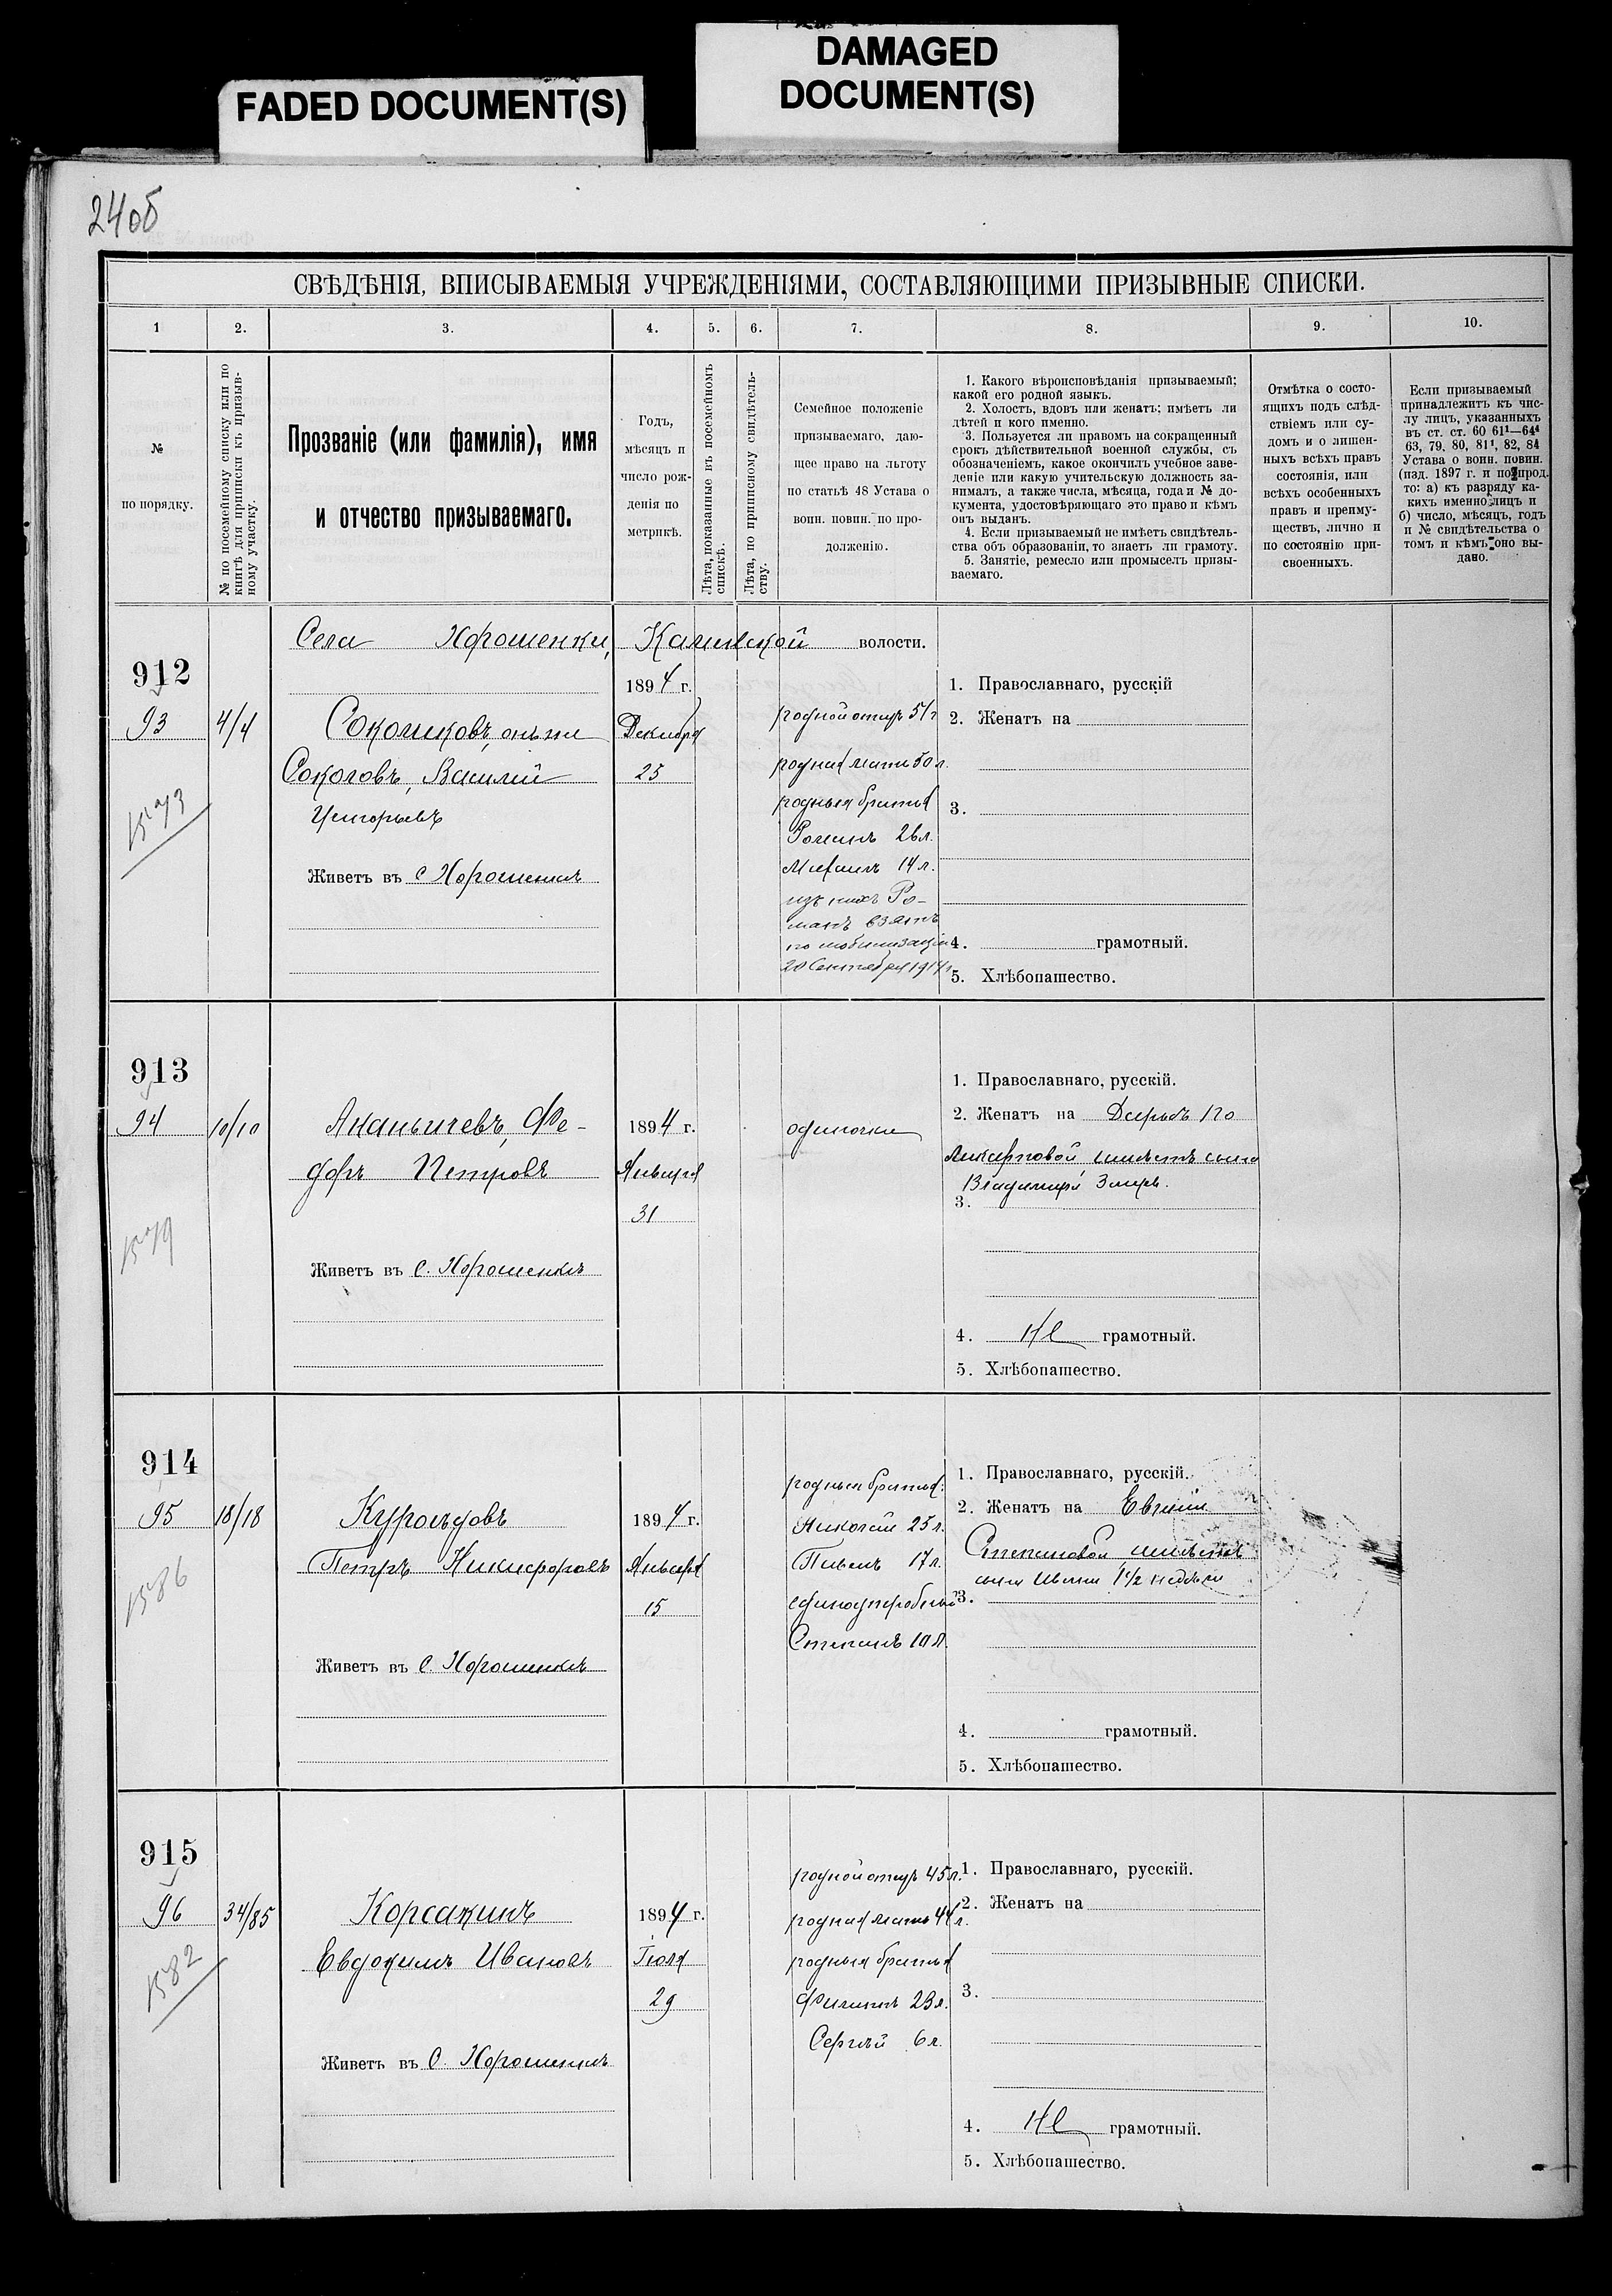 FADED DOCUMENT(S)
DAMAGED
DOCUMENT(S)
240б
СВѢДѢНІЯ, ВПИСЫВАЕМЫЯ УЧРЕЖДЕНІЯМИ, СОСТАВЛЯЮЩИМИ ПРИЗЫВНЫЕ СПИСКИ.
1 2. 3. 4. 5. 6. 7. 8. 9. 10.
№
по порядку.
№ по посемейному списку или по
книгѣ для приписки къ призыв-
ному участку.
Прозваніе (или фамилія), имя
и отчество призываемаго.
Годъ,
мѣсяцъ и
число рож-
денія по
метрикѣ.
Лѣта, показанные въ посемейномъ
спискѣ.
Лѣта, по приписному свидѣтель-
ству.
Семейное положеніе
призываемаго, даю-
щее право на льготу
по статьѣ 48 Устава о
воин. повин. по про-
долженію.
1. Какого вѣроисповѣданія призываемый;
какой его родной языкъ.
2. Холостъ, вдовъ или женатъ; имѣетъ ли
дѣтей и кого именно.
3. Пользуется ли правомъ на сокращенный
срокъ дѣйствительной военной службы, съ
обозначеніемъ, какое окончилъ учебное заве-
деніе или какую учительскую должность за-
нималъ, а также числа, мѣсяца, года и № до-
кумента, удостовѣряющаго это право и кѣмъ
онъ выданъ.
4. Если призываемый не имѣетъ свидѣтель-
ства объ образованіи, то знаетъ ли грамоту.
5. Занятіе, ремесло или промыселъ призы-
ваемаго.
Отмѣтка о состо-
ящихъ подъ слѣд-
ствіемъ или су-
домъ и о лишен-
ныхъ всѣхъ правъ
состоянія, или
всѣхъ особенныхъ
правъ и преиму-
ществъ, лично и
по состоянію при-
своенныхъ.
Если призываемый
принадлежитъ къ чис-
лу лицъ, указанныхъ
въ ст. ст. 60 61¹—64⁴
63, 79, 80, 81¹, 82, 84
Устава о воин. повин.
(изд. 1897 г. и по прод.
то: а) къ разряду ка-
кихъ именно лицъ и
б) число, мѣсяцъ, годъ
и № свидѣтельства о
томъ и кѣмъ оно вы-
дано.
Села Хорошенки, волости.
912
93 4/4
1573
Соколовъ, Василій
Григорьевъ
Живетъ въ с Хорошенкѣ
1894 г.
Декабря
25
родной отецъ 51 г
родная мать 50 л.
родныя братья
Романъ 26 л.
Михаилъ 14 л.
изъ нихъ Ро-
манъ взятъ
по мобилизаціи
20 Сентября 1914 г.
1. Православнаго, русскій
2. Женатъ на
3.
4. грамотный.
5. Хлѣбопашество.
913
94 10/10
1579
Ананьичевъ, Фе-
доръ Петровъ
Живетъ въ с. Хорошенкѣ
1894 г.
Января
31
одиночка
1. Православнаго, русскій.
2. Женатъ на Дарьѣ По
ликарповой, имѣетъ сына
Владимира 3 мѣс.
3.
4. Не грамотный.
5. Хлѣбопашество.
914
95 18/18
1586
Куроѣдовъ
Петръ Никифоровъ
Живетъ въ с. Хорошенкѣ
1894 г.
Января
15
родныя братья:
Николай 25 л.
Павелъ 17 л.
единоутробный
Степанъ 10 л.
1. Православнаго, русскій.
2. Женатъ на Евгеніи
Степановой, имѣетъ
сына Ивана 1½ недѣли
3.
4. грамотный.
5. Хлѣбопашество.
915
96 34/85
1582
Корсакинъ
Евдокимъ Ивановъ
Живетъ въ с. Хорошенкѣ
1894 г.
Іюля
29
родной отецъ 45 л.
родная мать 44 л.
родныя братья
Филиппъ 23 л.
Сергѣй 6 л.
1. Православнаго, русскій.
2. Женатъ на
3.
4. Не грамотный.
5. Хлѣбопашество.